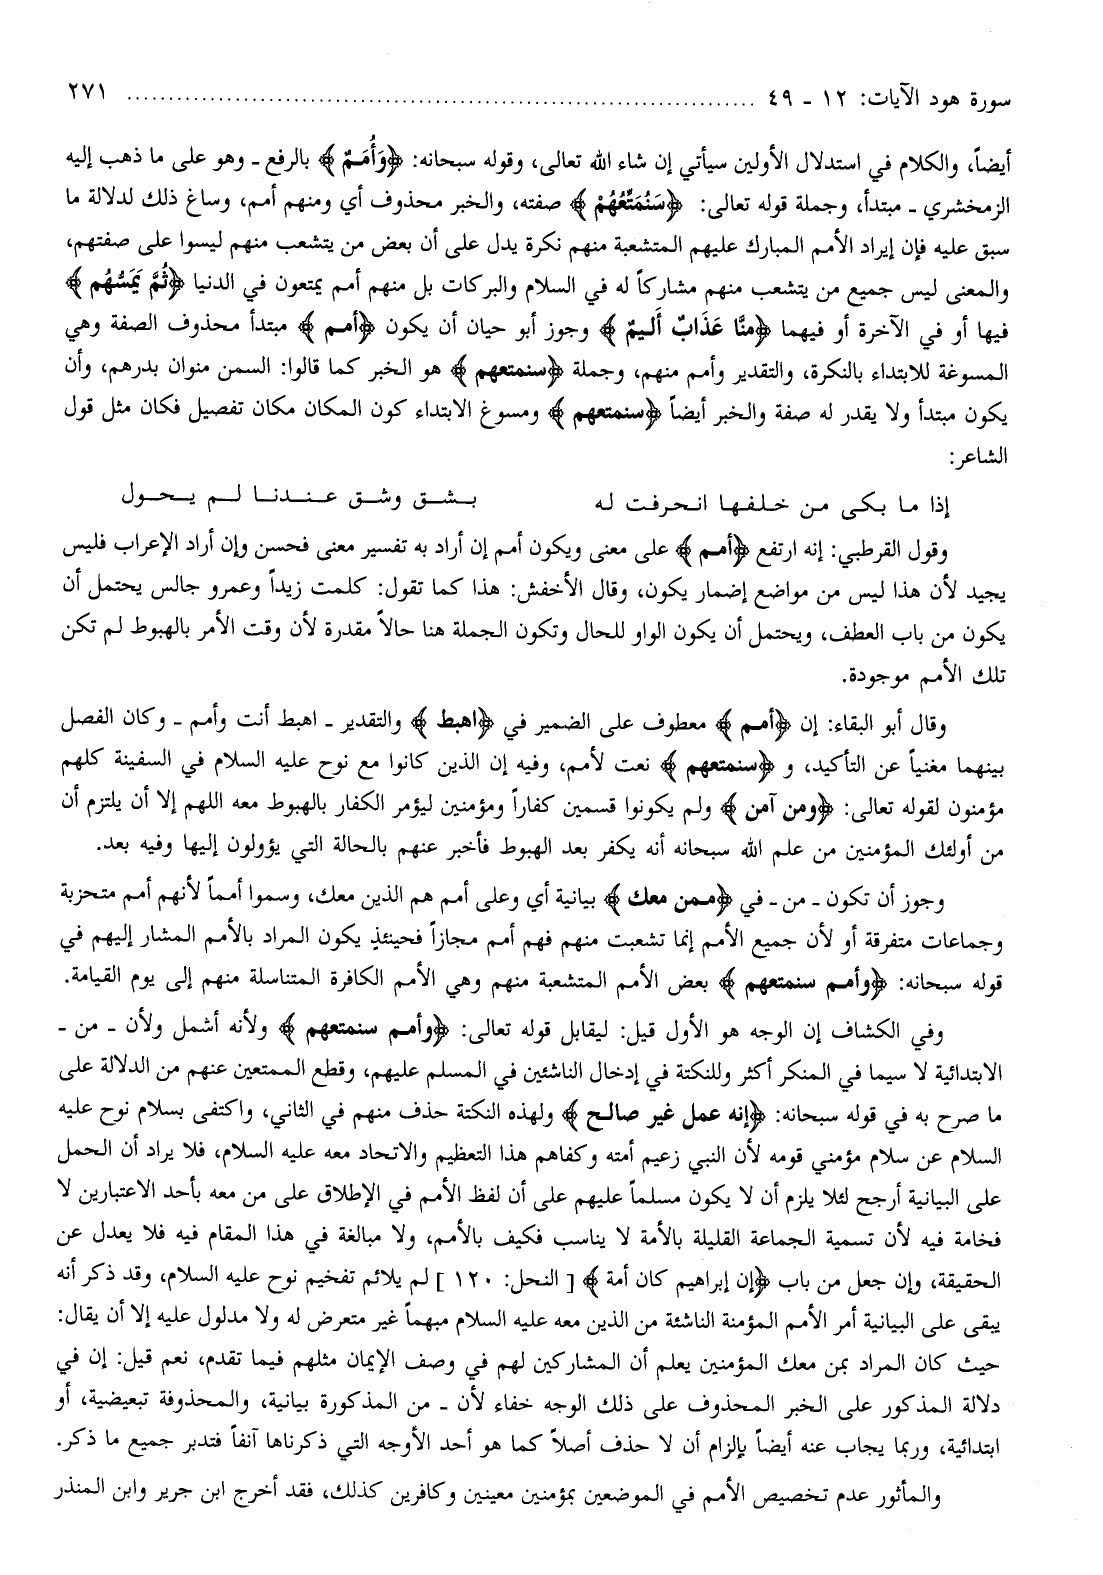 سورة هود الآيات: ١٢ - ٤٩ ........................................ ٢٧١
أيضاً، والكلام في استدلال الأولين سيأتي إن شاء الله تعالى، وقوله سبحانه: ﴿وَأُمَمٌ﴾ بالرفع ـ وهو على ما ذهب إليه
الزمخشري ـ مبتدأ، وجملة قوله تعالى: ﴿سَنُمَتِّعُهُمْ﴾ صفته، والخبر محذوف أي ومنهم أمم، وساغ ذلك لدلالة ما
سبق عليه فإن إيراد الأمم المبارك عليهم المتشعبة منهم نكرة يدل على أن بعض من يتشعب منهم ليسوا على صفتهم،
والمعنى ليس جميع من يتشعب منهم مشاركاً له في السلام والبركات بل منهم أمم يمتعون في الدنيا ﴿ثُمَّ يَمَسُّهُم﴾
فيها أو في الآخرة أو فيهما ﴿مِنَّا عَذَابٌ أَلِيمٌ﴾ وجوز أبو حيان أن يكون ﴿أمم﴾ مبتدأ محذوف الصفة وهي
المسوغة للابتداء بالنكرة، والتقدير وأمم منهم، وجملة ﴿سنمتعهم﴾ هو الخبر كما قالوا: السمن منوان بدرهم، وأن
يكون مبتدأ ولا يقدر له صفة والخبر أيضاً ﴿سنمتعهم﴾ ومسوغ الابتداء كون المكان مكان تفصيل فكان مثل قول
الشاعر:
إذا ما بكى من خلفها انحرفت له بشق وشق عندنا لم يحول
وقول القرطبي: إنه ارتفع ﴿أمم﴾ على معنى ويكون أمم إن أراد به تفسير معنى فحسن وإن أراد الإعراب فليس
يجيد لأن هذا ليس من مواضع إضمار يكون، وقال الأخفش: هذا كما تقول: كلمت زيداً وعمرو جالس يحتمل أن
يكون من باب العطف، ويحتمل أن يكون الواو للحال وتكون الجملة هنا حالاً مقدرة لأن وقت الأمر بالهبوط لم تكن
تلك الأمم موجودة.
وقال أبو البقاء: إن ﴿أمم﴾ معطوف على الضمير في ﴿اهبط﴾ والتقدير ـ اهبط أنت وأمم ـ وكان الفصل
بينهما مغنياً عن التأكيد، و ﴿سنمتعهم﴾ نعت لأمم، وفيه إن الذين كانوا مع نوح عليه السلام في السفينة كلهم
مؤمنون لقوله تعالى: ﴿ومن آمن﴾ ولم يكونوا قسمين كفاراً ومؤمنين ليؤمر الكفار بالهبوط معه اللهم إلا أن يلتزم أن
من أولئك المؤمنين من علم الله سبحانه أنه يكفر بعد الهبوط فأخبر عنهم بالحالة التي يؤولون إليها وفيه بعد.
وجوز أن تكون ـ من ـ في ﴿ممن معك﴾ بيانية أي وعلى أمم هم الذين معك، وسموا أمماً لأنهم أمم متحزبة
وجماعات متفرقة أو لأن جميع الأمم إنما تشعبت منهم فهم أمم مجازاً فحينئذٍ يكون المراد بالأمم المشار إليهم في
قوله سبحانه: ﴿وأمم سنمتعهم﴾ بعض الأمم المتشعبة منهم وهي الأمم الكافرة المتناسلة منهم إلى يوم القيامة.
وفي الكشاف إن الوجه هو الأول قيل: ليقابل قوله تعالى: ﴿وأمم سنمتعهم﴾ ولأنه أشمل ولأن ـ من ـ
الابتدائية لا سيما في المنكر أكثر وللنكتة في إدخال الناشئين في المسلم عليهم، وقطع الممتعين عنهم من الدلالة على
ما صرح به في قوله سبحانه: ﴿إنه عمل غير صالح﴾ ولهذه النكتة حذف منهم في الثاني، واكتفى بسلام نوح عليه
السلام عن سلام مؤمني قومه لأن النبي زعيم أمته وكفاهم هذا التعظيم والاتحاد معه عليه السلام، فلا يراد أن الحمل
على البيانية أرجح لئلا يلزم أن لا يكون مسلماً عليهم على أن لفظ الأمم في الإطلاق على من معه بأحد الاعتبارين لا
فخامة فيه لأن تسمية الجماعة القليلة بالأمة لا يناسب فكيف بالأمم، ولا مبالغة في هذا المقام فيه فلا يعدل عن
الحقيقة، وإن جعل من باب ﴿إن إبراهيم كان أمة﴾ [ النحل: ١٢٠ ] لم يلائم تفخيم نوح عليه السلام، وقد ذكر أنه
يبقى على البيانية أمر الأمم المؤمنة الناشئة من الذين معه عليه السلام مبهماً غير متعرض له ولا مدلول عليه إلا أن يقال:
حيث كان المراد بمن معك المؤمنين يعلم أن المشاركين لهم في وصف الإيمان مثلهم فيما تقدم، نعم قيل: إن في
دلالة المذكور على الخبر المحذوف على ذلك الوجه خفاء لأن ـ من المذكورة بيانية، والمحذوفة تبعيضية، أو
ابتدائية، وربما يجاب عنه أيضاً بإلزام أن لا حذف أصلاً كما هو أحد الأوجه التي ذكرناها آنفاً فتدبر جميع ما ذكر.
والمأثور عدم تخصيص الأمم في الموضعين بمؤمنين معينين وكافرين كذلك، فقد أخرج ابن جرير وابن المنذر